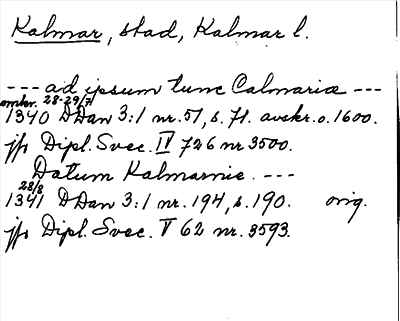 Kalmar, stad, Kalmar l.
--- ad ipsum tunc Calmarie ---
omkr. 28-29/7
1340 DDan 3:1 nr. 51, s. 71. avskr. o. 1600.
jfr Dipl. Svec. IV 726 nr 3500.
Datum Kalmarnie. ---
28/8
1341 DDan 3:1 nr. 194, s. 190. orig.
jfr Dipl. Svec. V 62 nr. 3593.